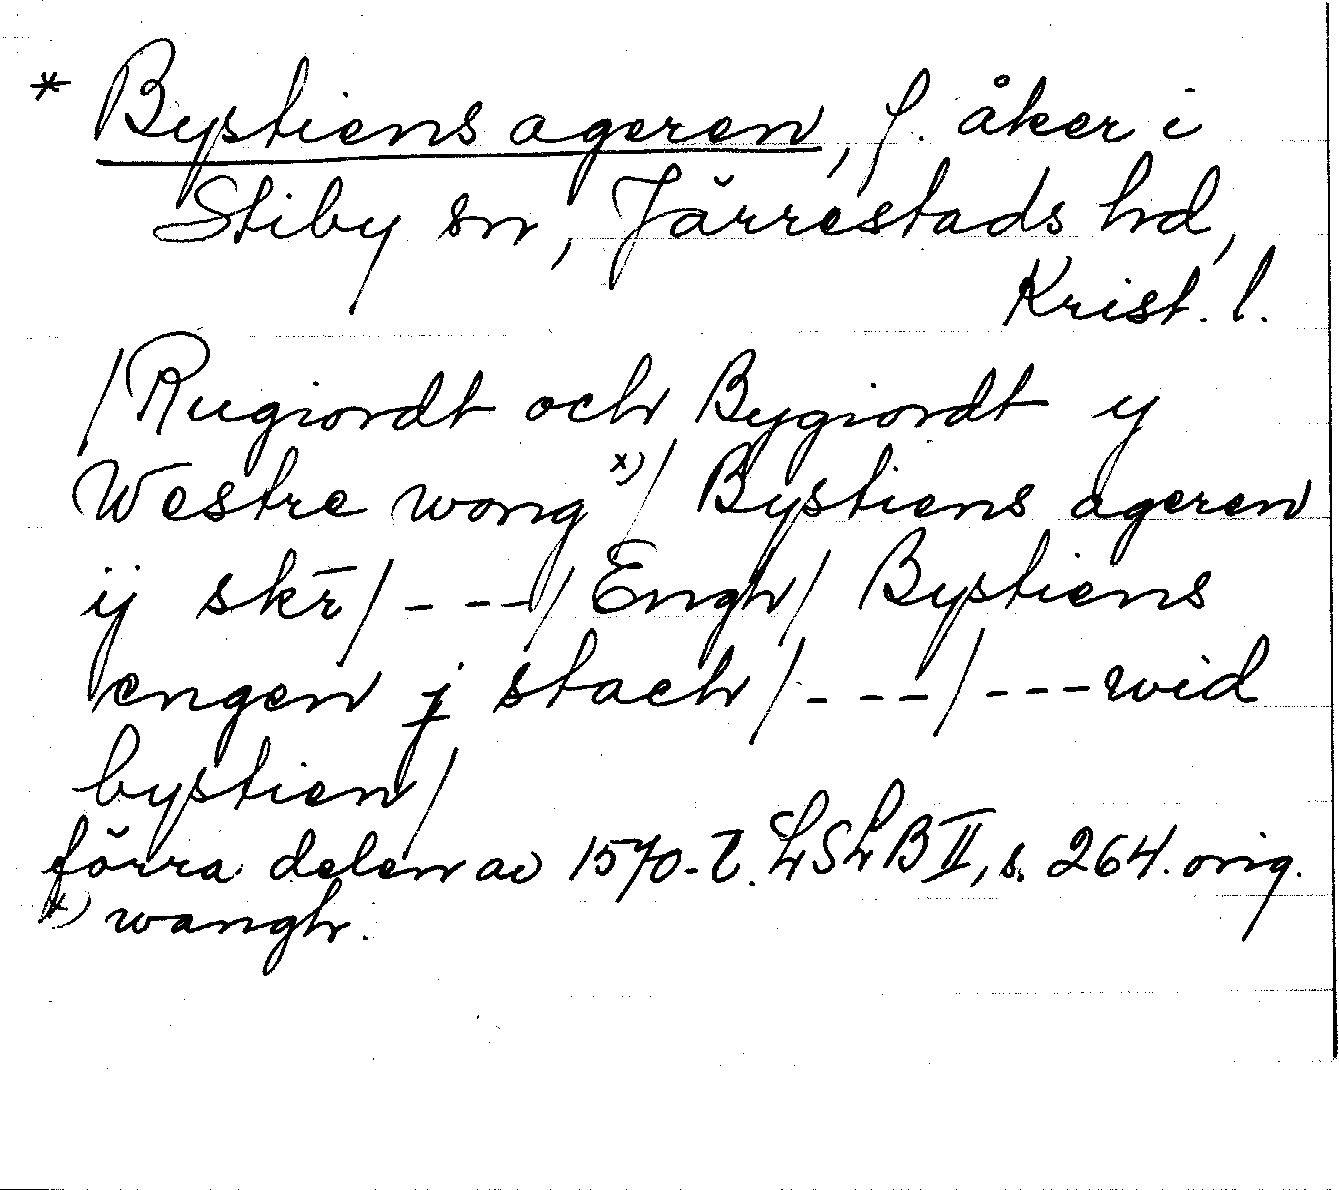 * Bystiens ageren, f. åker i
Stiby sn, Järrestads hd,
Krist. l.
/Rugiordt och Bygiordt y
Westre wong x)/ Bystiens ageren
ij skr̄/---/Engh/ Bystiens
engen j stach/---/---wid
bystien/
förra delen av 1570-t. LSLB II, s. 264. orig.
x) wangh.